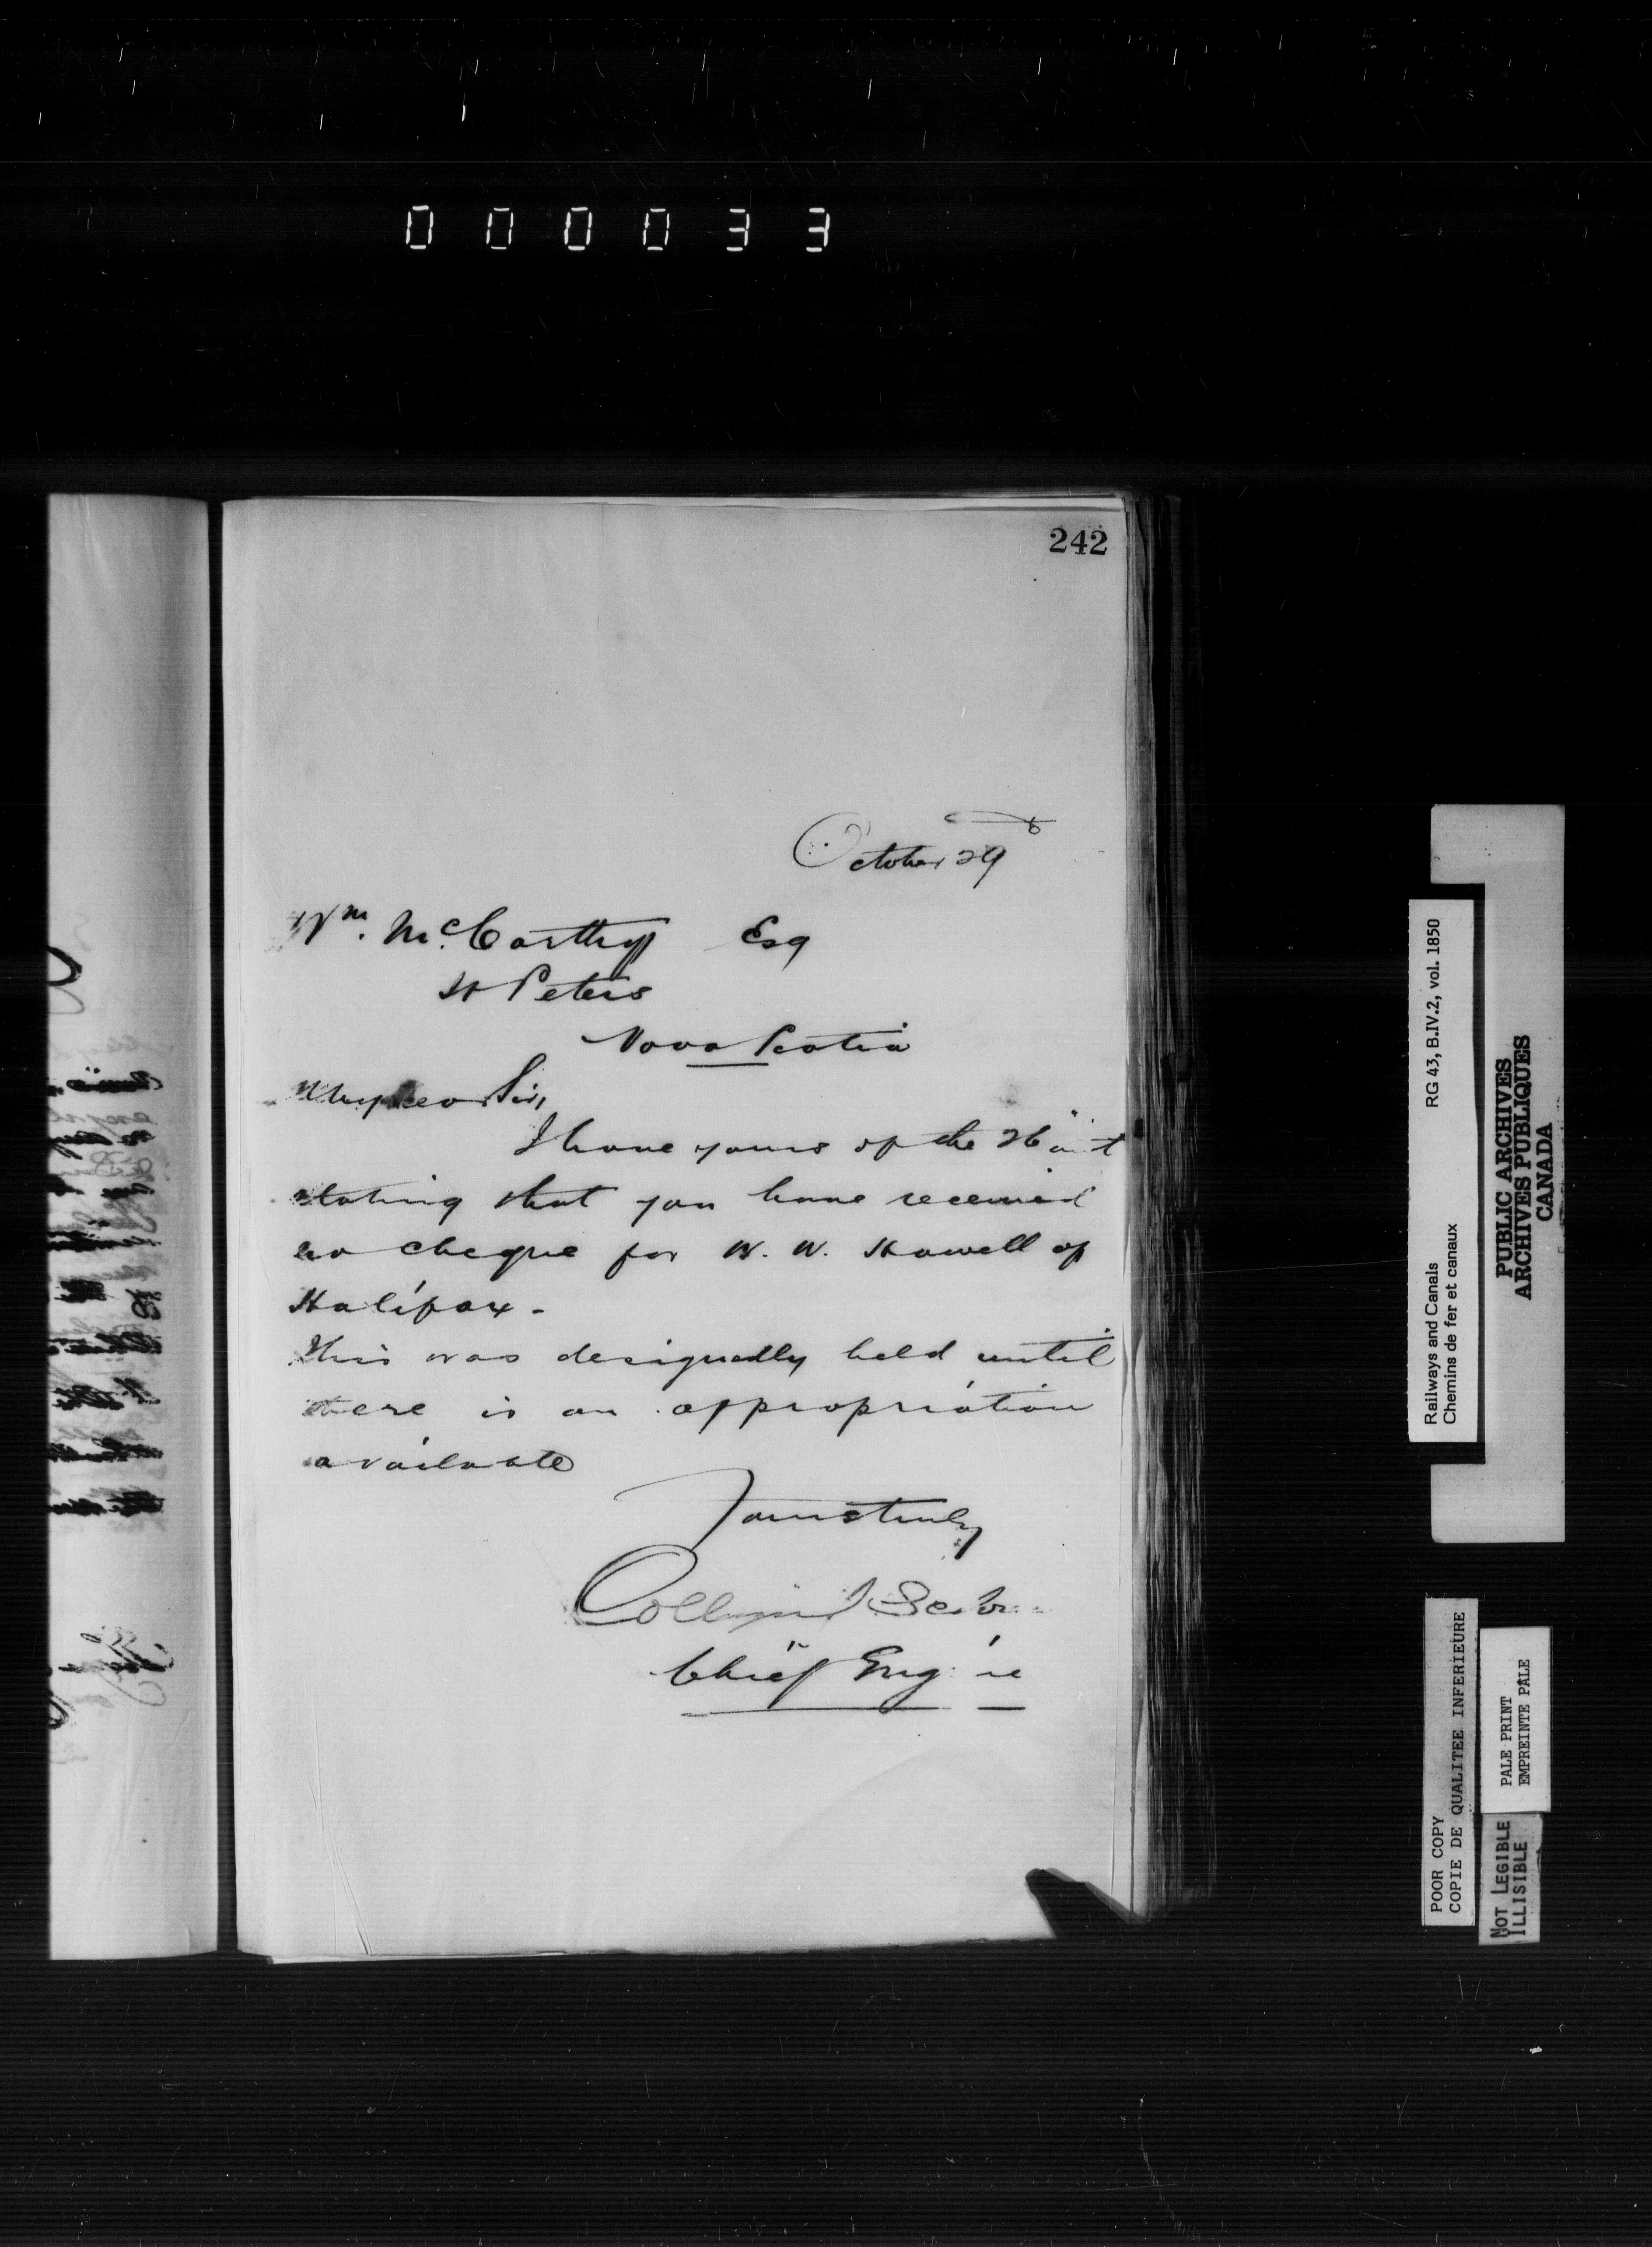 000033
242
October 29
Wm. McCarthy Esq
St Peters
Nova Scotia
My dear Sir,
I have yours of the 26 inst
stating that you have received
no cheque for W. W. Howell of
Halifax -
This was designedly held until
there is an appropriation
available
Yours truly
Collingwood Schreiber
Chief Eng
RG 43, B.IV.2, vol. 1850
Railways and Canals
Chemins de fer et canaux
PUBLIC ARCHIVES
ARCHIVES PUBLIQUES
CANADA
POOR COPY
COPIE DE QUALITEE INFERIEURE
PALE PRINT
EMPREINTE PALE
NOT LEGIBLE
ILLISIBLE